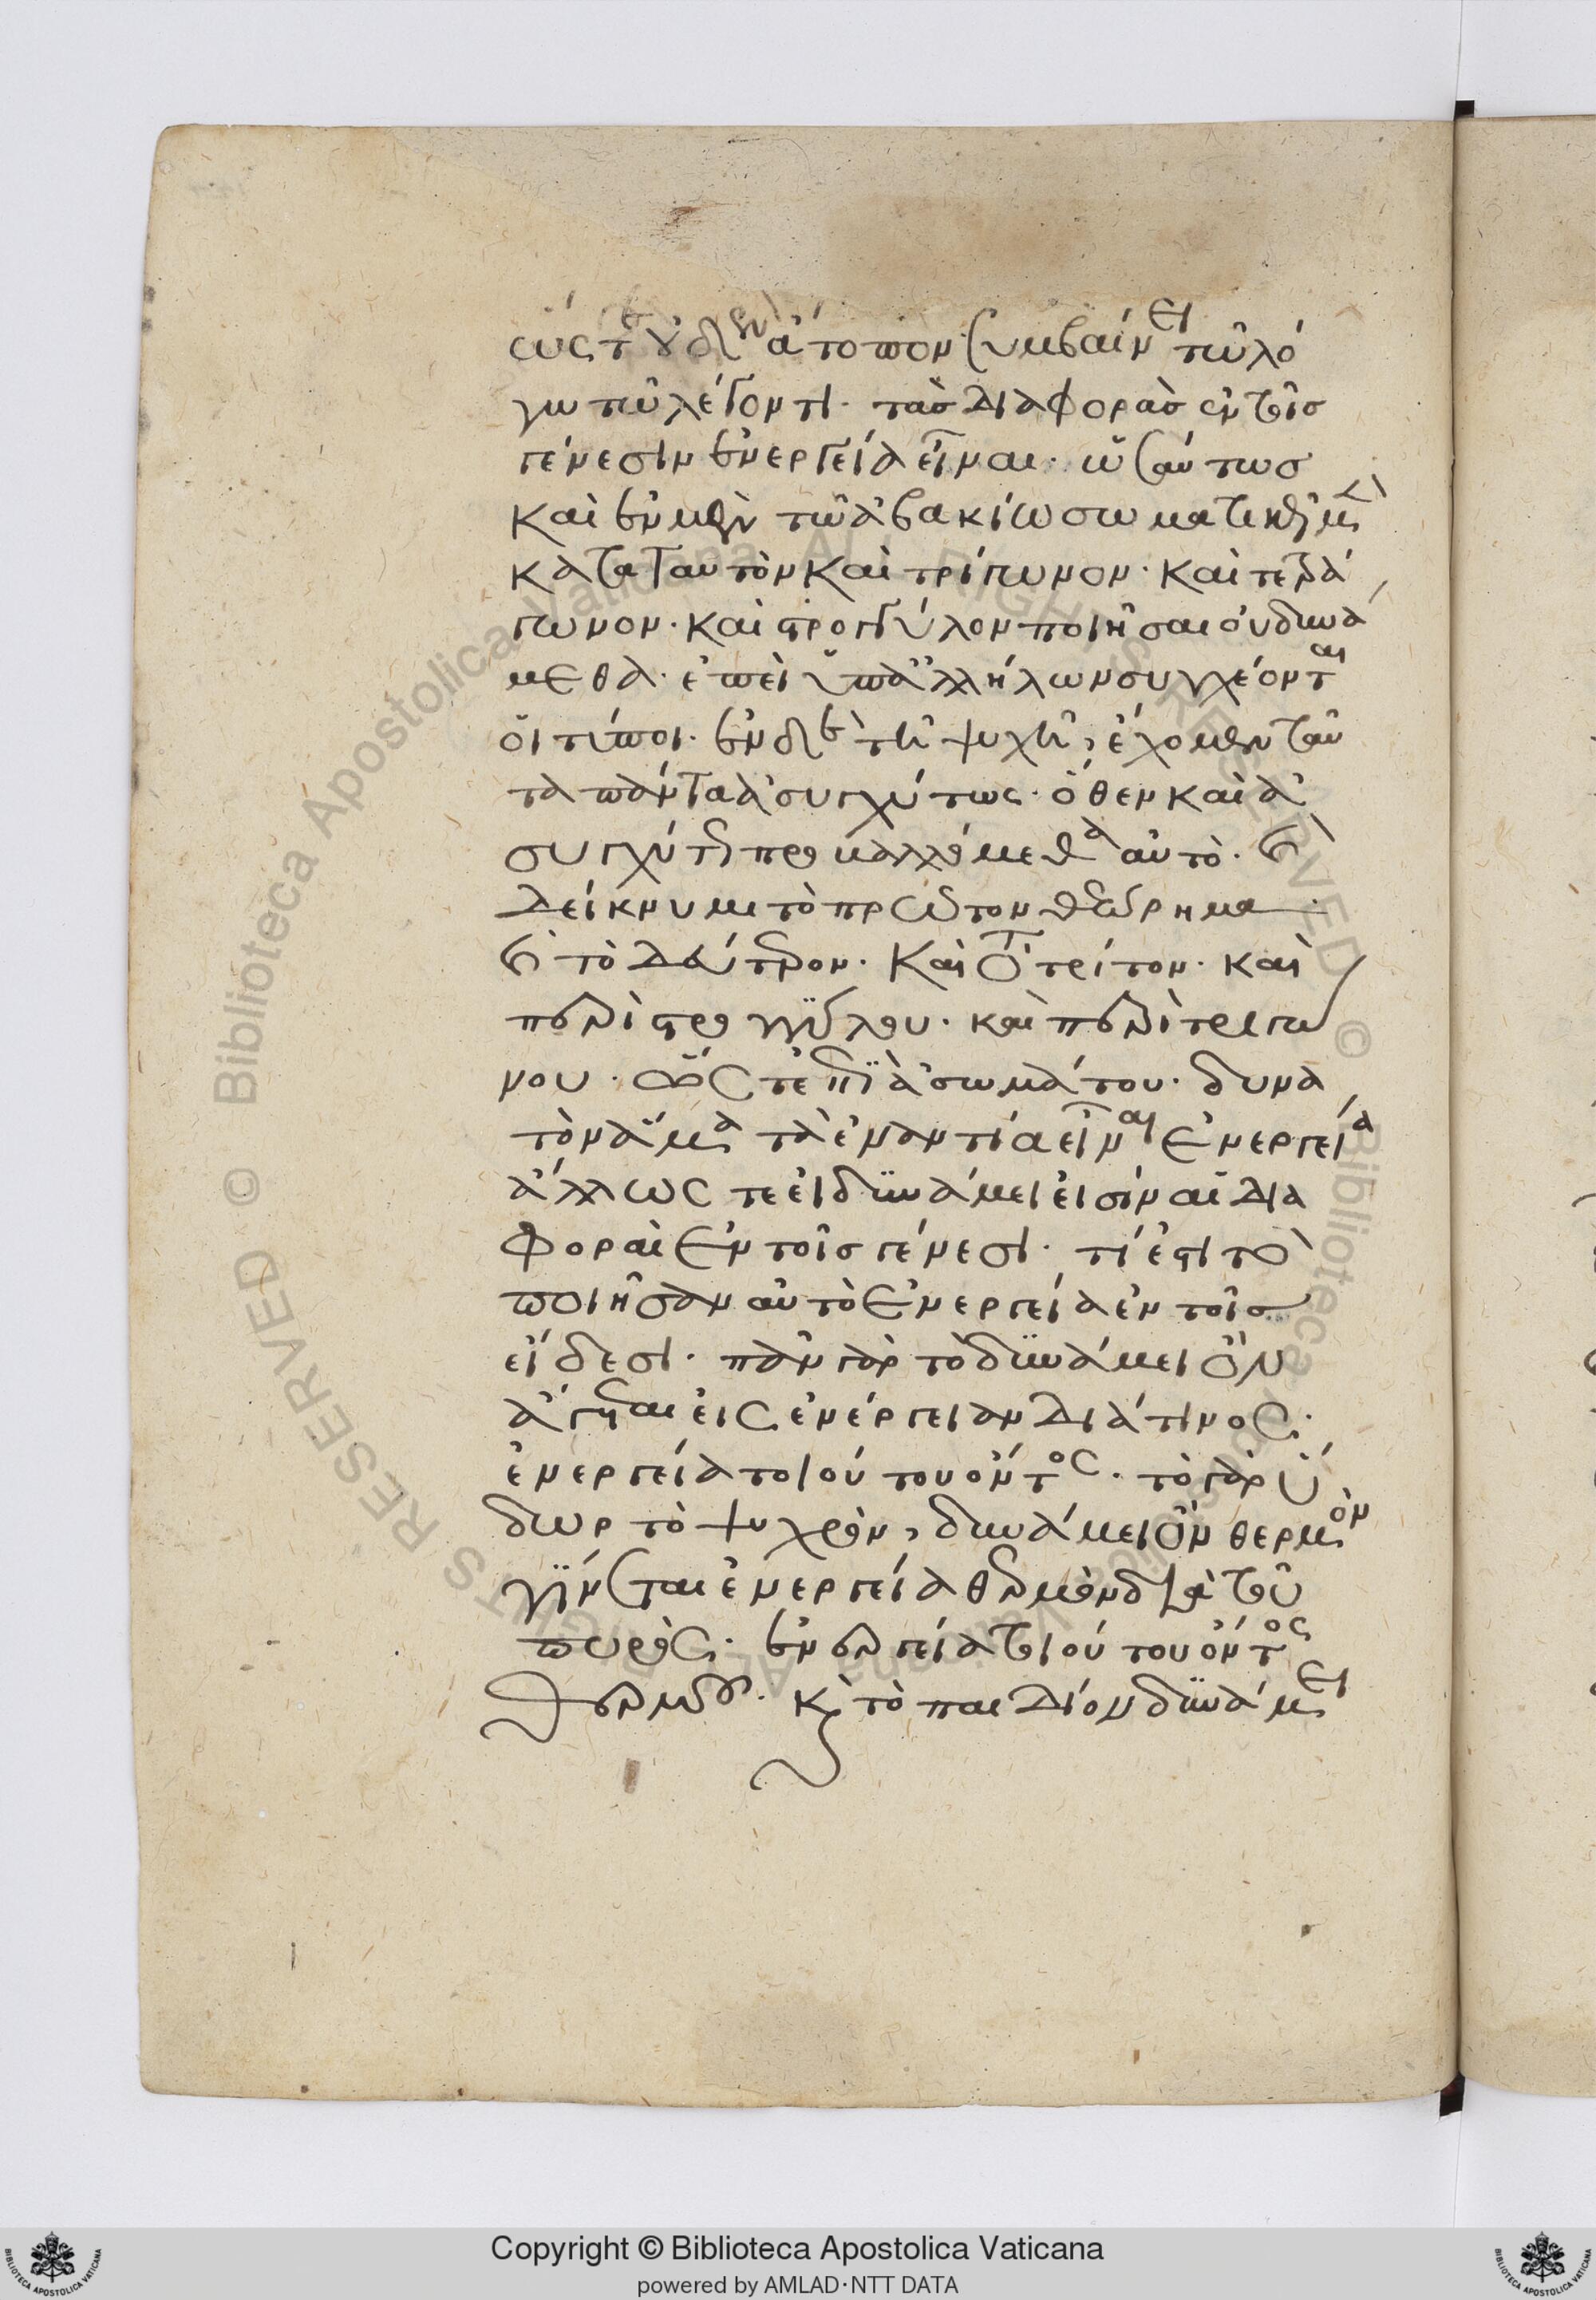 ὥστε οὐδὲν ἄτοπον συμβαίνει τῶ λό
γω τῶ λέγοντι· τὰς διαφορὰς ἐν τοῖς
γένεσιν ἐνεργεία εἶναι· ὡσαύτως
καὶ ἐν μὲν τῶ ἀβακίω σωματικῶ
κατα ταυτὸν καὶ τρίγωνον· καὶ τετρά
γωνον· καὶ στρογγύλον ποιῆσαι οὐ δυνά
μεθα· ἐπεὶ ὑπἀλλήλων συγχέονται
οἱ τύποι· ἐν δὲ τῆ ψυχῆ, ἔχομεν ταῦ
τα πάντα ἀσυγχύτως· ὅθεν καὶ ἀ
συγχύτη προβαλλόμεθα αὐτὸ· καὶ
δείκνυμι τὸ πρῶτον θεώρημα·
καὶ τὸ δεύτερον· καὶ τὸ τρίτον· καὶ
περὶ στρογγύλου· καὶ περὶ τριγώ
νου· ὥστε ἐπὶ ἀσωμάτου· δυνα
τὸν ἅμα τὰ ἐναντία εἶναι ἐνεργεία
ἄλλως τε εἰ δυνάμει εἰσὶν αἱ δια
φοραὶ ἐν τοῖς γένεσι· τί ἐστι τὸ
ποιῆσαν αὐτὸ ἐνεργεία ἐν τοῖς
εἴδεσι· πᾶν γὰρ τὸ δυνάμει ὂν
ἄγεται εἰς ἐνέργειαν διά τινος·
ἐνεργεία τοιούτου ὄντος· τὸ γὰρ ὕ
δωρ τὸ ψυχρὸν, δυνάμει ὂν θερμὸν
γίνεται ἐνεργεία θερμὸν διὰ τοῦ
πυρὸς· ἐνεργεία τοιούτου ὄντος
θερμοῦ· καὶ τὸ παιδίον δυνάμει
Copyright © Biblioteca Apostolica Vaticana
powered by AMLAD·NTT DATA